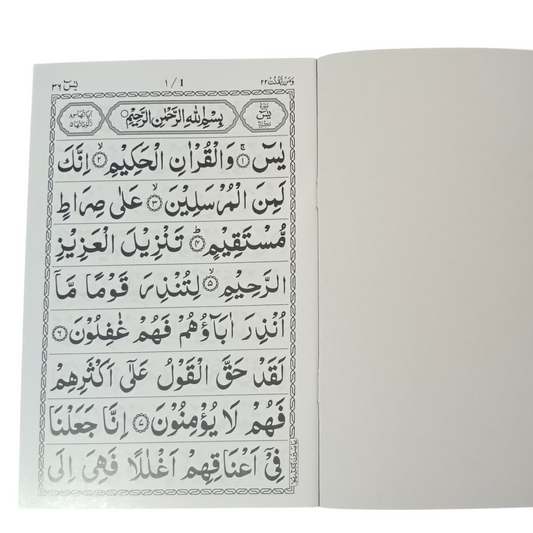 وَمَن يَّقْنُتْ ٢٢
١ / 1
يٰسٓ ٣٦
سُورَةُ يٰسٓ
بِسْمِ اللّٰهِ الرَّحْمٰنِ الرَّحِيْمِ
اٰيَاتُهَا ٨٣
يٰسٓ ۝١ وَالْقُرْاٰنِ الْحَكِيْمِ ۝٢ اِنَّكَ
لَمِنَ الْمُرْسَلِيْنَ ۝٣ عَلٰى صِرَاطٍ
مُّسْتَقِيْمٍ ۝٤ تَنْزِيْلَ الْعَزِيْزِ
الرَّحِيْمِ ۝٥ لِتُنْذِرَ قَوْمًا مَّاۤ
اُنْذِرَ اٰبَآؤُهُمْ فَهُمْ غٰفِلُوْنَ ۝٦
لَقَدْ حَقَّ الْقَوْلُ عَلٰٓى اَكْثَرِهِمْ
فَهُمْ لَا يُؤْمِنُوْنَ ۝٧ اِنَّا جَعَلْنَا
فِيْٓ اَعْنَاقِهِمْ اَغْلٰلًا فَهِىَ اِلَى